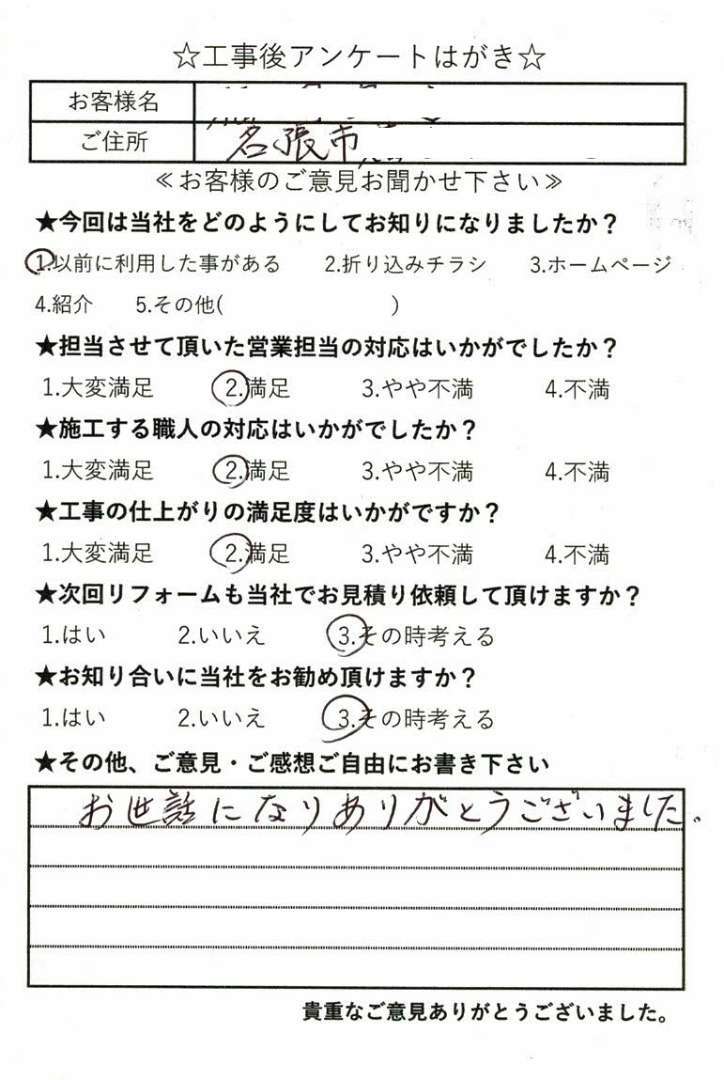 ☆工事後アンケートはがき☆
お客様名
ご住所 名張市
≪お客様のご意見お聞かせ下さい≫
★今回は当社をどのようにしてお知りになりましたか？
1.以前に利用した事がある 2.折り込みチラシ 3.ホームページ
4.紹介 5.その他( )
★担当させて頂いた営業担当の対応はいかがでしたか？
1.大変満足 2.満足 3.やや不満 4.不満
★施工する職人の対応はいかがでしたか？
1.大変満足 2.満足 3.やや不満 4.不満
★工事の仕上がりの満足度はいかがですか？
1.大変満足 2.満足 3.やや不満 4.不満
★次回リフォームも当社でお見積り依頼して頂けますか？
1.はい 2.いいえ 3.その時考える
★お知り合いに当社をお勧め頂けますか？
1.はい 2.いいえ 3.その時考える
★その他、ご意見・ご感想ご自由にお書き下さい
お世話になりありがとうございました。
貴重なご意見ありがとうございました。